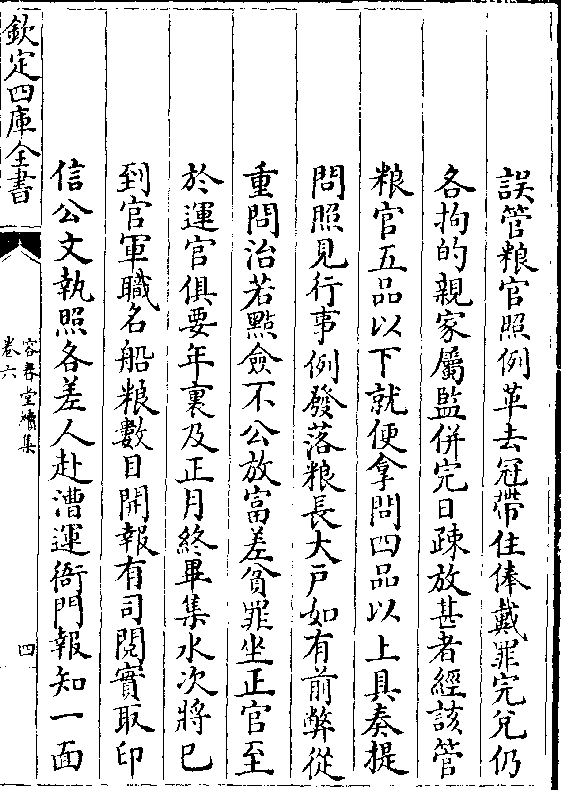 誤管粮官照例革去冠帶住俸戴罪完兌仍
各拘的親家屬監併完日疎放甚者經該管
粮官五品以下就便拿問四品以上具奏提
問照見行事例發落粮長大戸如有前弊從
重問治若㸃僉不公放富差貧罪坐正官至
於運官俱要年裏及正月終畢集水次將已
到官軍職名船粮數目開報有司閱實取印
信公文執照各差人赴漕運衙門報知一面
欽定四庫全書
容春堂續集
卷六
四